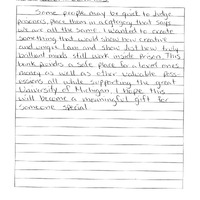 Some people may be quick to judge
prisoners, place them in a category that says
we are all the same. I wanted to create
something that would show how creative
and unique I am and show just how truly
brilliant minds still work inside prison. This
bank provides a safe place for a loved ones
money as well as other valuable poss-
essions all while supporting the great
University of Michigan. I hope this
will become a meaningful gift for
someone special